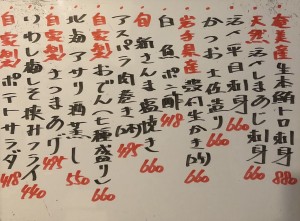 奄美産生本鮪トロ刺身 880
天然活〆しまあじ刺身
活〆平目刺身 660
かつお土佐造り 660
岩手県産殻付生かき(2ケ) 660
白魚ポン酢 418
旬新さんま塩焼き 660
アスパラ肉巻き(2本) 495
自家製おでん(七種盛り) 660
北海アサリ酒蒸し 550
自家製さつまあげ 495
いわし梅しそ挟みフライ 440
自家製ポテトサラダ 418